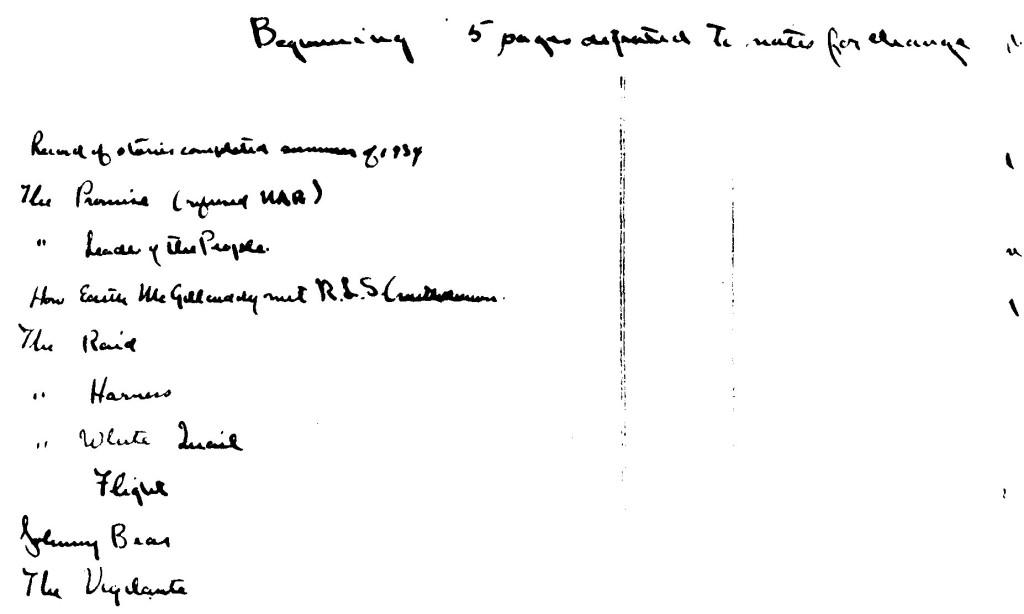 Beginning 5 pages devoted to notes for change
Record of stories completed summer of 1934
The Promise (refused NAR)
" Leader of the People.
How Edith McGillcuddy met R.L.S (
The Raid
" Harness
" White Quail
Flight
Johnny Bear
The Vigilante